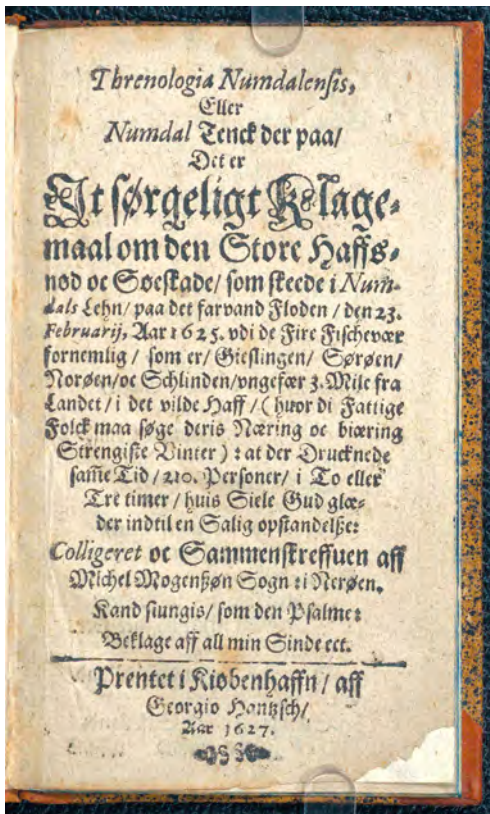 Threnologia Numdalensis,
Eller
Numdal Tenck der paa/
Det er
Et sørgeligt Klage-
maal om den Store Haffs-
nød oc Søeskade/ som skeede i Num-
dals Lehn/ paa det farvand Floden/ den 23.
Februarij, Aar 1625. vdi de Fire Fischevær
fornemlig/ som er/ Gieslingen/ Sørøen/
Norøen/ oc Schlinden/ vngefær 3. Mile fra
Landet/ i det vilde Haff/ (hvor di Fattige
Folck maa søge deris Næring oc biæring
Strengiste Vinter): at der Drucknede
sam̃e Tid/ 210. Personer/ i To eller
Tre timer/ huis Siele Gud glæ-
der indtil en Salig opstandelße:
Colligeret oc Sammenskreffuen aff
Michel Mogenßøn Sogn: i Nerøen.
Kand siungis/ som den Psalme:
Beklage aff all min Sinde ect.
Prentet i Kiøbenhaffn/ aff
Georgio Hantzsch/
Aar 1627.